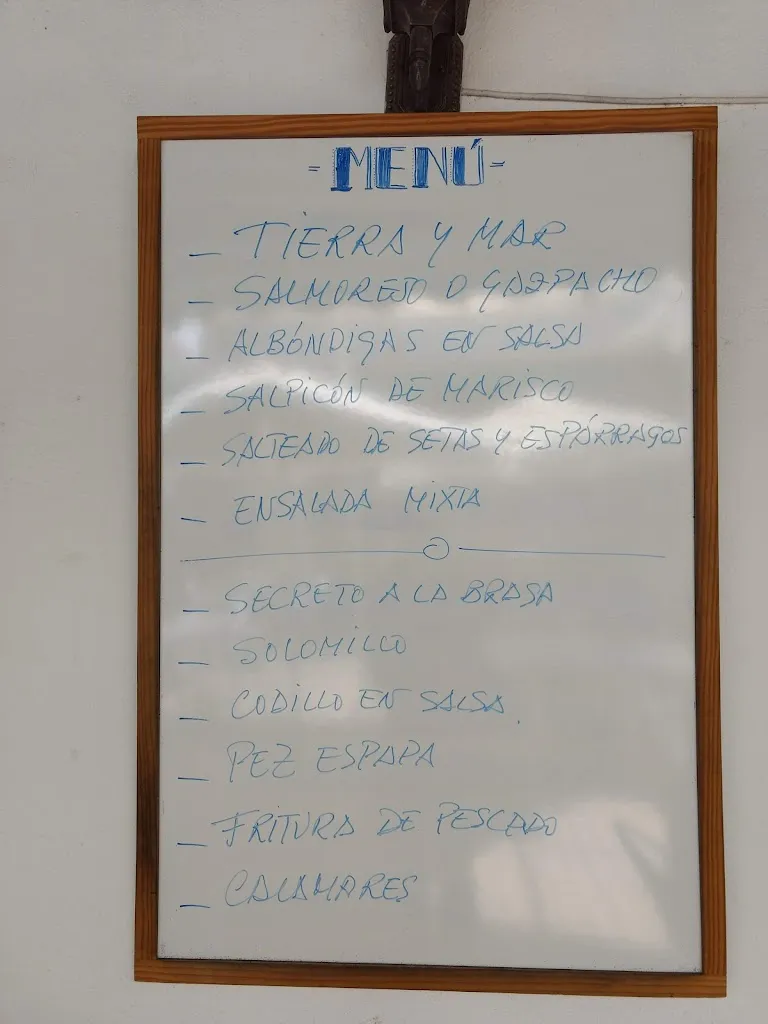 - MENÚ -
- TIERRA Y MAR
- SALMOREJO O GAZPACHO
- ALBÓNDIGAS EN SALSA
- SALPICÓN DE MARISCO
- SALTEADO DE SETAS Y ESPÁRRAGOS
- ENSALADA MIXTA
- SECRETO A LA BRASA
- SOLOMILLO
- CODILLO EN SALSA.
- PEZ ESPAPA
- FRITURA DE PESCADO
- CALAMARES